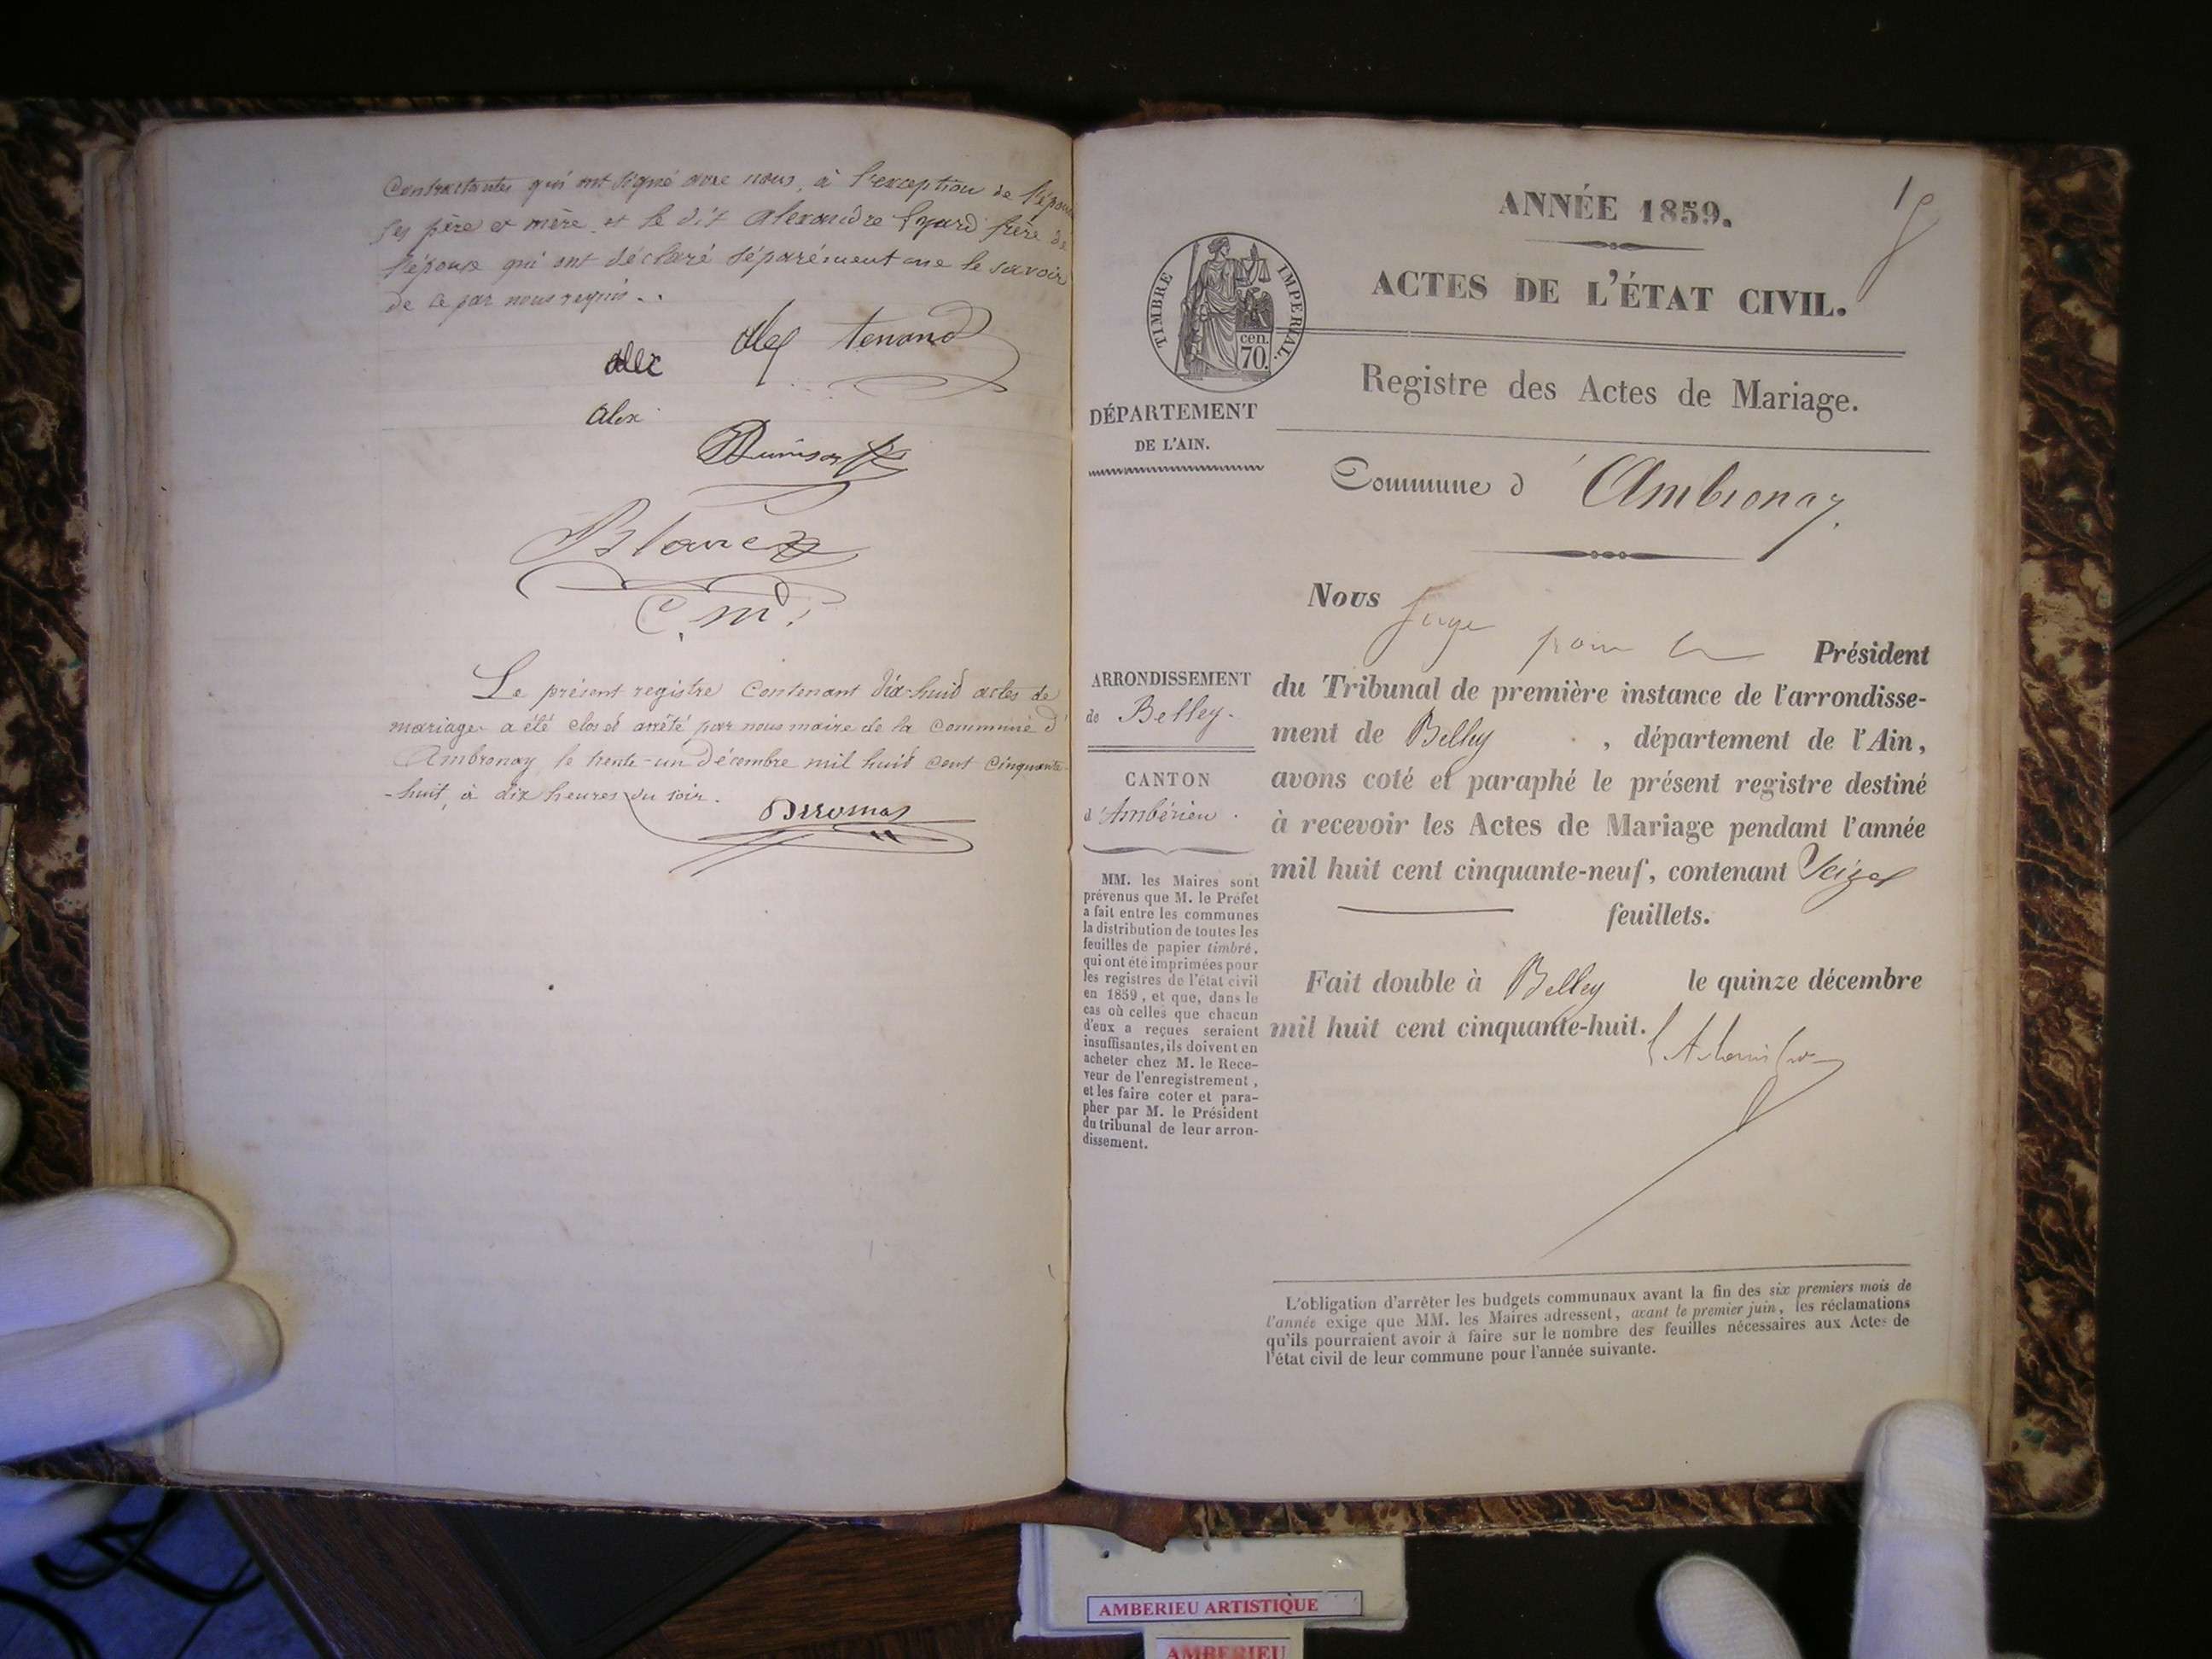 Contractantes qui ont signé avec nous, à l'exception de l'épouse
ses père et mère, et le dit Alexandre frère de
l'épouse qui ont déclaré séparément ne le savoir
de ce par nous requis.
alex Alex tenand
alex
Blanc
C. m.
Le présent registre Contenant dix-huit actes de
mariage a été clos et arrêté par nous maire de la Commune d'
Ambronay le trente-un décembre mil huit cent cinquante
-huit, à dix heures du soir.
ANNÉE 1859.
1
ACTES DE L'ÉTAT CIVIL.
TIMBRE IMPERIAL.
cen.
70.
Registre des Actes de Mariage.
DÉPARTEMENT
DE L'AIN.
Commune d'Ambronay.
Nous Juge pour le Président
du Tribunal de première instance de l'arrondisse-
ment de Belley, département de l'Ain,
avons coté et paraphé le présent registre destiné
à recevoir les Actes de Mariage pendant l'année
mil huit cent cinquante-neuf, contenant Seize
feuillets.
Fait double à Belley le quinze décembre
mil huit cent cinquante-huit.
ARRONDISSEMENT
de Belley.
CANTON
d'Ambérieu.
MM. les Maires sont
prévenus que M. le Préfet
a fait entre les communes
la distribution de toutes les
feuilles de papier timbré,
qui ont été imprimées pour
les registres de l'état civil
en 1859, et que, dans le
cas où celles que chacun
d'eux a reçues seraient
insuffisantes, ils doivent en
acheter chez M. le Rece-
veur de l'enregistrement,
et les faire coter et para-
pher par M. le Président
du tribunal de leur arron-
dissement.
L'obligation d'arrêter les budgets communaux avant la fin des six premiers mois de
l'année exige que MM. les Maires adressent, avant le premier juin, les réclamations
qu'ils pourraient avoir à faire sur le nombre des feuilles nécessaires aux Actes de
l'état civil de leur commune pour l'année suivante.
AMBERIEU ARTISTIQUE
AMBERIEU